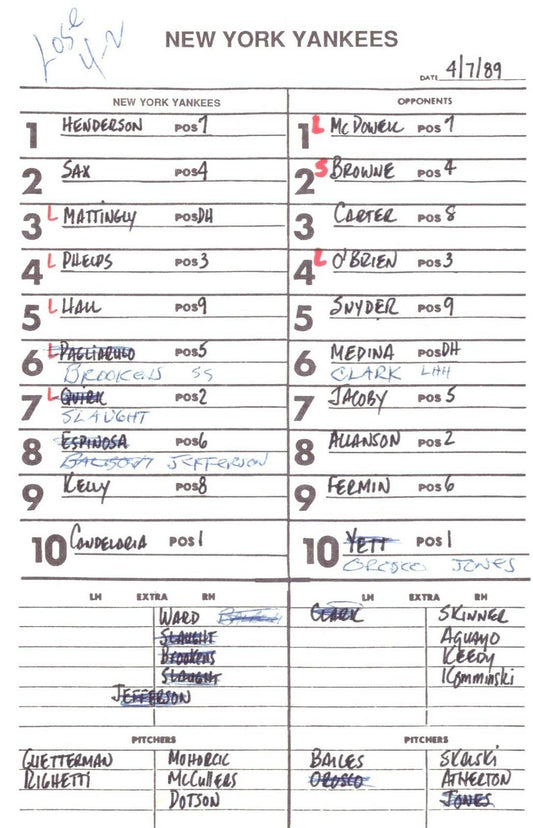 Lose
4-2
NEW YORK YANKEES
DATE 4/7/89
NEW YORK YANKEES
1 HENDERSON POS 7
2 SAX POS 4
3 L MATTINGLY POS DH
4 L PHELPS POS 3
5 L HALL POS 9
6 L PAGLIARULO POS 5
BROOKENS SS
7 L QUIRK POS 2
SLAUGHT
8 ESPINOSA POS 6
JEFFERSON
9 KELLY POS 8
10 CANDELORIA POS 1
OPPONENTS
1 L McDOWELL POS 7
2 S BROWNE POS 4
3 CARTER POS 8
4 L O'BRIEN POS 3
5 SNYDER POS 9
6 MEDINA POS DH
CLARK LHH
7 JACOBY POS 5
8 ALLANSON POS 2
9 FERMIN POS 6
10 YETT POS 1
OROSCO JONES
LH EXTRA RH
WARD
SLAUGHT
BROOKENS
SLAUGHT
JEFFERSON
LH EXTRA RH
CLARK SKINNER
AGUAYO
KEEDY
KOMMINSKI
PITCHERS
GUETTERMAN MOHORCIC
RIGHETTI McCULLERS
DOTSON
PITCHERS
BAILES SKALSKI
OROSCO ATHERTON
JONES